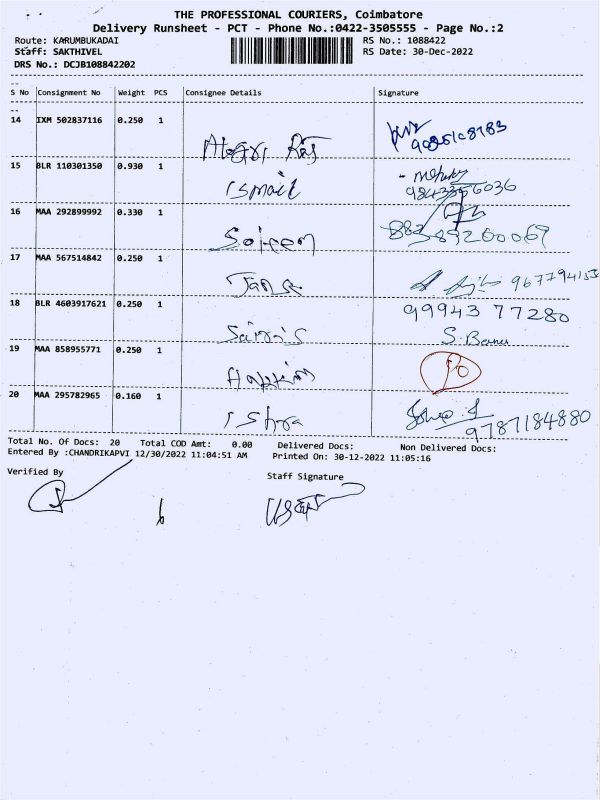 THE PROFESSIONAL COURIERS, Coimbatore
Delivery Runsheet - PCT - Phone No.:0422-3505555 - Page No.:2
Route: KARUMBUKADAI RS No.: 1088422
Staff: SAKTHIVEL RS Date: 30-Dec-2022
DRS No.: DCJB108842202
S No Consignment No Weight PCS Consignee Details Signature
14 IXM 502837116 0.250 1
15 BLR 110301350 0.930 1
Ismail
16 MAA 292899992 0.330 1
Saleem
17 MAA 567514842 0.250 1
18 BLR 4603917621 0.250 1
99943 77280
S. Banu
19 MAA 858955771 0.250 1
20 MAA 295782965 0.160 1
9787184880
Total No. Of Docs: 20 Total COD Amt: 0.00 Delivered Docs: Non Delivered Docs:
Entered By :CHANDRIKAPVI 12/30/2022 11:04:51 AM Printed On: 30-12-2022 11:05:16
Verified By Staff Signature